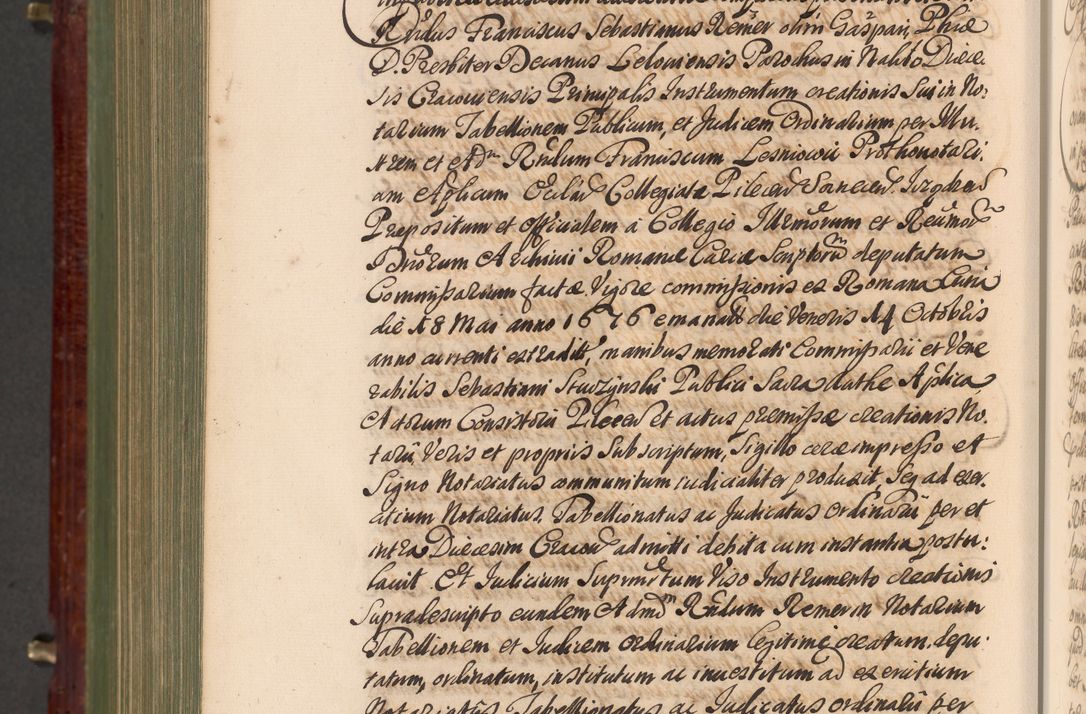 Rndus Franciscus Sebastianus Remer olim Gaspari, Phiæ
D. Presbiter Decanus Leloviensis Parochus in Nakło Diæce-
sis Cracoviensis Principalis Instrumentum creationis Sui in No-
tarium Tabellionem Publicum, et Judicem Ordinarium per Illu-
strem et Adm Rndum Franciscum Lesniowij Prothonotari-
am Aplicum Collegiatæ Pilecen
Præpositum et Officialem à Collegio Illrmorum et Reumor
Dnorum Archivii Romanæ Curiæ Scriptorum deputatum
Commissarium factæ. Vigore commissionis ex Romana Curia
die 18 Mai anno 1676 emanatt die Veneris 14 Octobris
anno currenti extraditt, manibus memorati Commissarii et Vene
rabilis Sebastiani Studzynskii Publici Sacra Authe Aplica
Actorum Consistorii Pilecen et actus premissæ creationis No-
tarii Veris et propriis Subscriptum, Sigillo ceræ impresso et
Signo Notariatus communitum iudicialiter produxit, Seq ad exer-
citium Notariatus. Tabellionatus ac Judicatus ordinarii per et
intra Diæcesim Cracov admitti debita cum instantia postu-
lavit. Et Judicium Suprmdtum Viso Instrumento creationis
Supradescripto eundem Admd Rndum Remer in Notarium
Tabellionem et Judicem ordinarium legitime creatum, depu-
tatum, ordinatum, institutum ac investitum ad exercitium
Notariatus Tabellionatus ac Judicatus ordinarii per